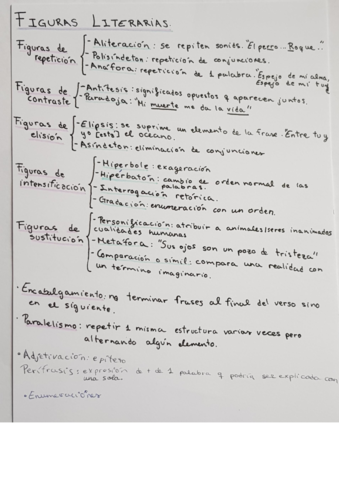 FIGURAS LITERARIAS.
Figuras de repetición
- Aliteración: se repiten sonidos "El perro... Roque..."
- Polisíndeton: repetición de conjunciones.
- Anáfora: repetición de 1 palabra. "Espejo de mi alma,
Espejo de mi tuy
Figuras de contraste
- Antítesis: significados opuestos q aparecen juntos.
- Paradoja: "Mi muerte me da la vida"
Figuras de elisión
- Elipsis: se suprime un elemento de la frase. "Entre tu y
yo [está] el oceano.
- Asíndeton: eliminación de conjunciones
Figuras de intensificación
- Hiperbole: exageración
- Hiperbatón: cambio de orden normal de las
palabras.
- Interrogación retórica.
- Gradación: enumeración con un orden.
Figuras de sustitución
- Personificación: atribuir a animales/seres inanimados
cualidades humanas
- Metáfora: "Sus ojos son un pozo de tristeza"
- Comparación o símil: compara una realidad con
un término imaginario.
· Encabalgamiento: no terminar frases al final del verso sino
en el siguiente.
· Paralelismo: repetir 1 misma estructura varias veces pero
alternando algún elemento.
· Adjetivación: epíteto
Perífrasis: expresión de + de 1 palabra y podría ser explicada con
una sola.
· Enumeraciones